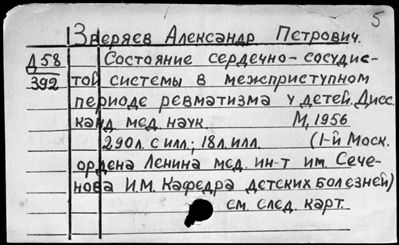 5
Зверяев Александр Петрович.
Д58 Состояние сердечно-сосудис-
392 той системы в межприступном
периоде ревматизма у детей. Дисс.
канд мед. наук. М, 1956
290л. с илл.; 18л. илл. (1-й Моск.
ордена Ленина мед. ин-т им. Сече-
нова И.М. Кафедра детских болезней)
см. след. карт.